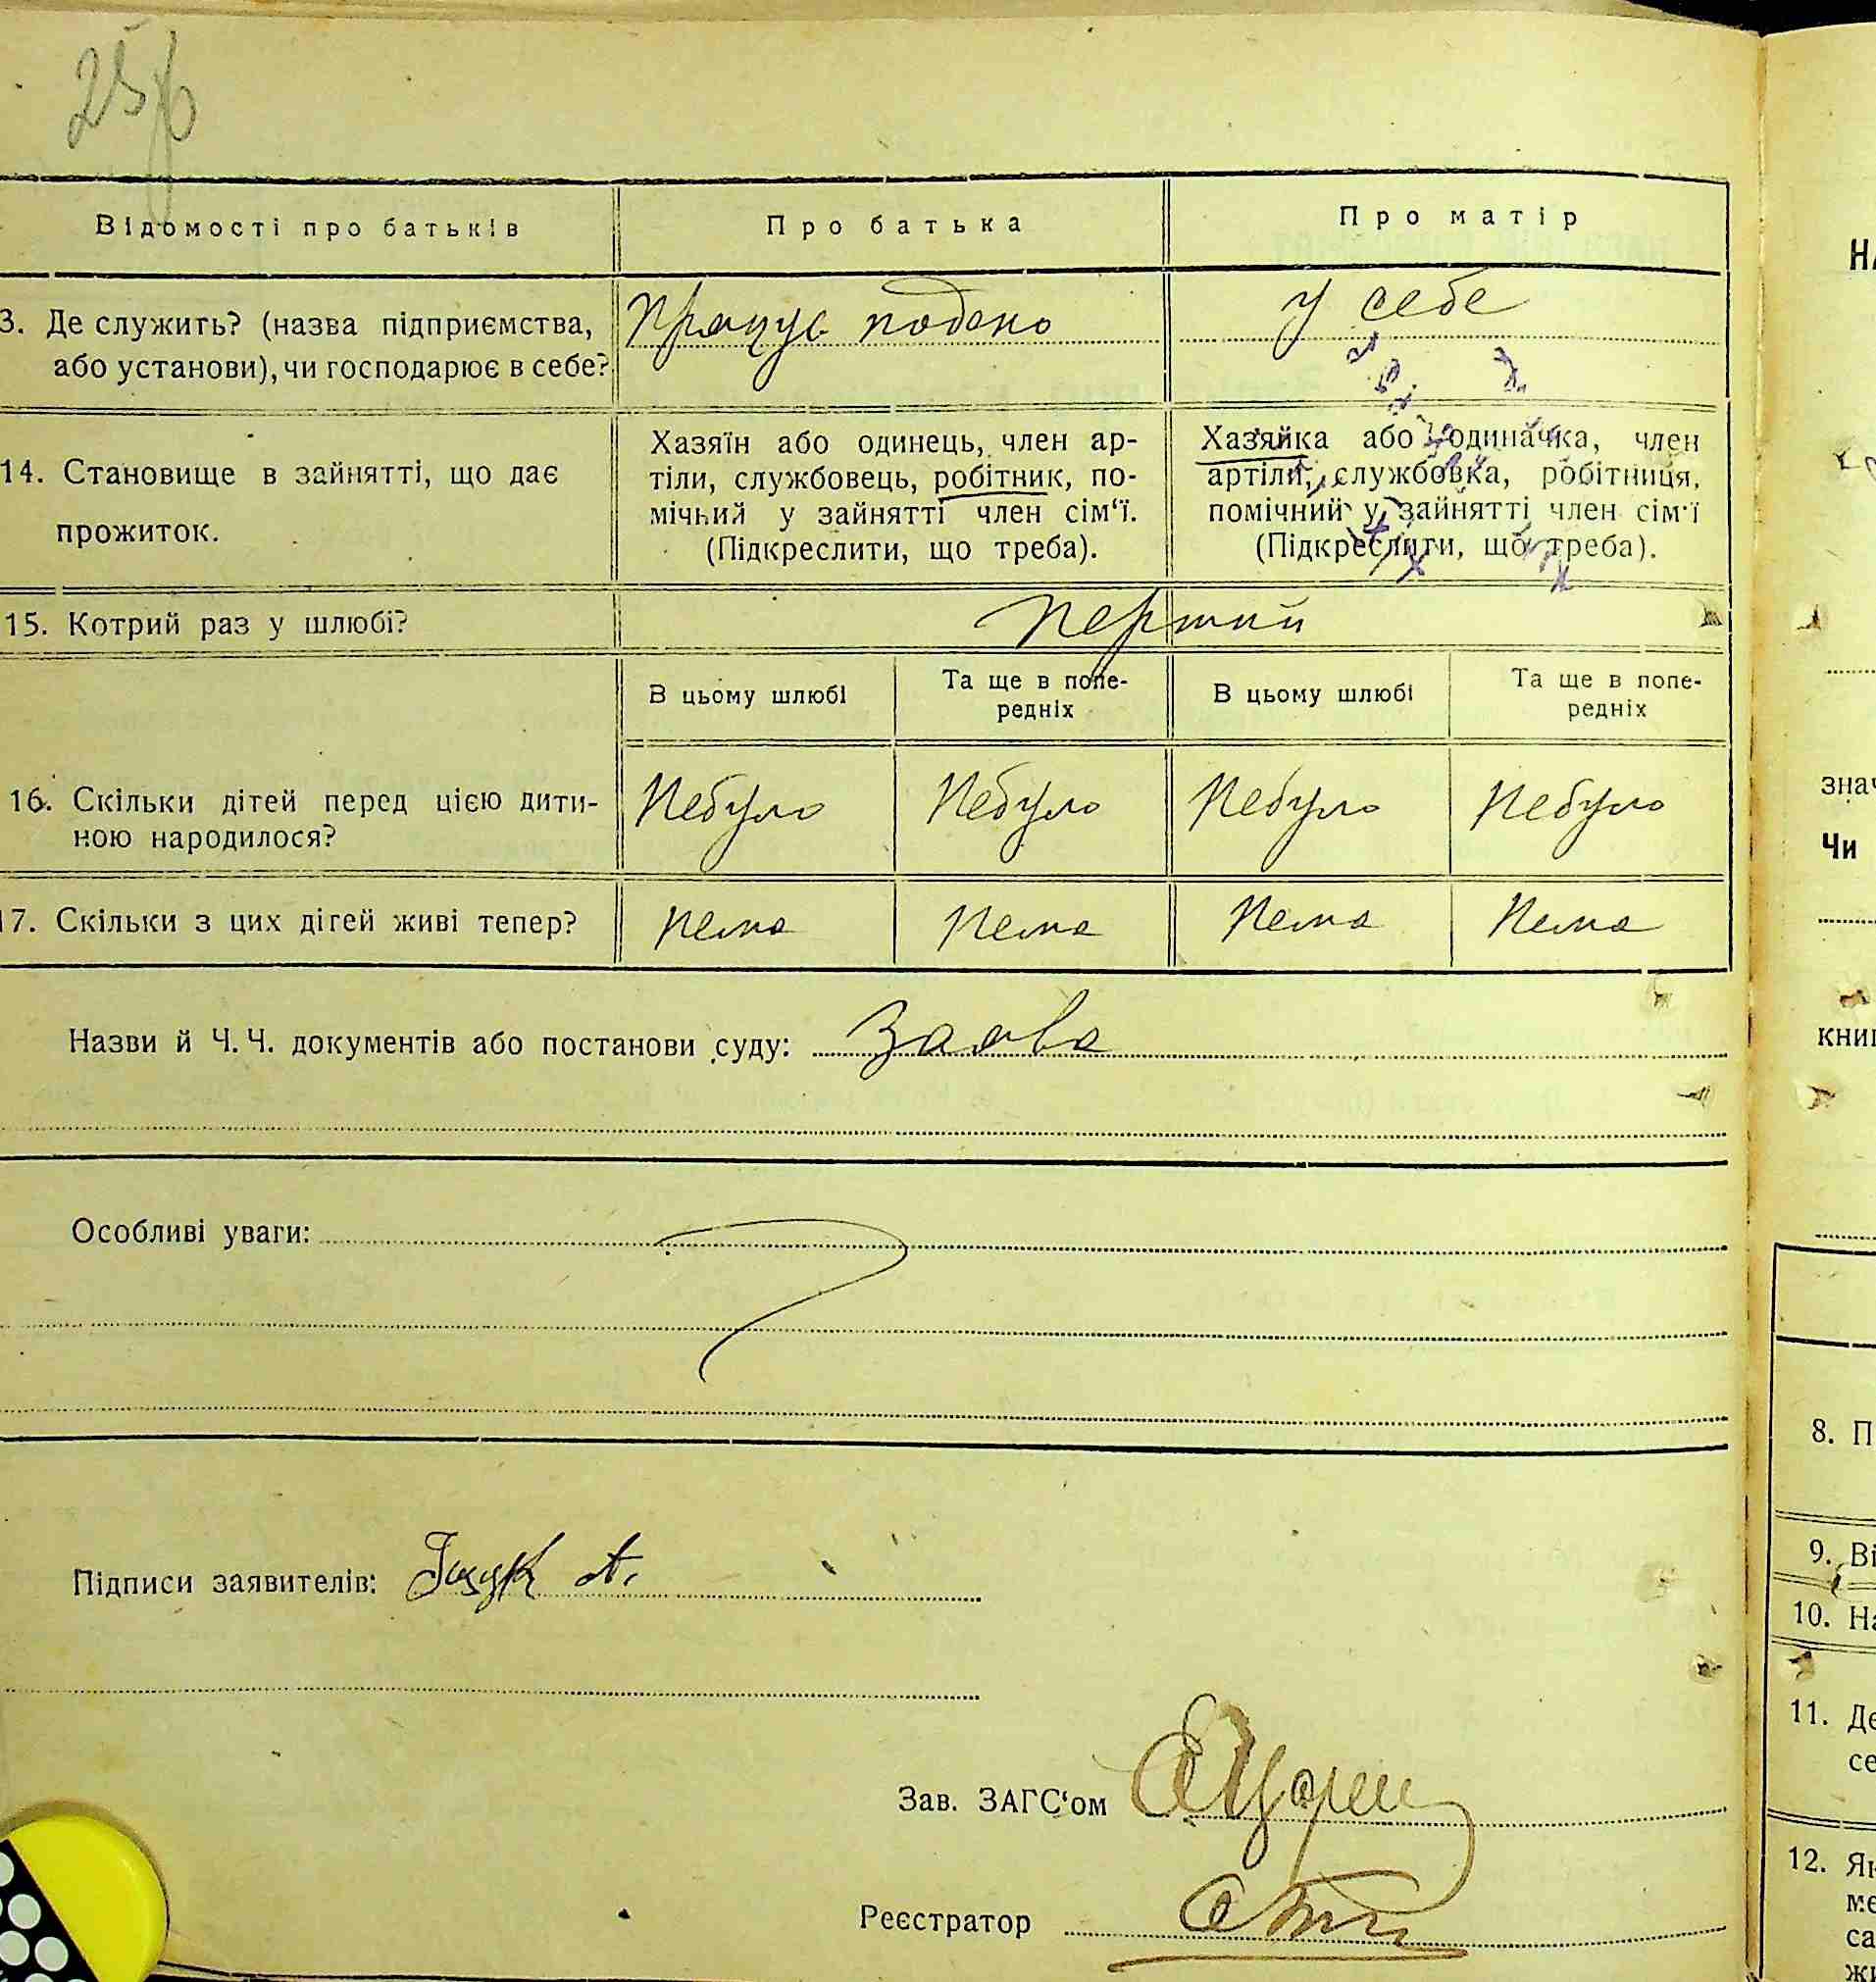 Відомості про батьків
Про батька
Про матір
3. Де служить? (назва підприємства,
або установи), чи господарює в себе?
Працує подено
у себе
14. Становище в зайнятті, що дає
прожиток.
Хазяїн або одинець, член ар-
тіли, службовець, робітник, по-
мічний у зайнятті член сім‘ї.
(Підкреслити, що треба).
Хазяйка або одиначка, член
артіли, службовка, робітниця,
помічний у зайнятті член сім‘ї
(Підкреслити, що треба).
15. Котрий раз у шлюбі?
перший
В цьому шлюбі
Та ще в попе-
редніх
В цьому шлюбі
Та ще в попе-
редніх
16. Скільки дітей перед цією дити-
ною народилося?
Небуло
Небуло
Небуло
Небуло
17. Скільки з цих дітей живі тепер?
Нема
Нема
Нема
Нема
Назви й Ч. Ч. документів або постанови суду: Заява
Особливі уваги:
Підписи заявителів: Іщук А.
Зав. ЗАГС‘ом
Реєстратор
НА
знач
Чи
книг
8. П
9. Ві
10. На
11. Де
се
12. Як
ме
са
жи